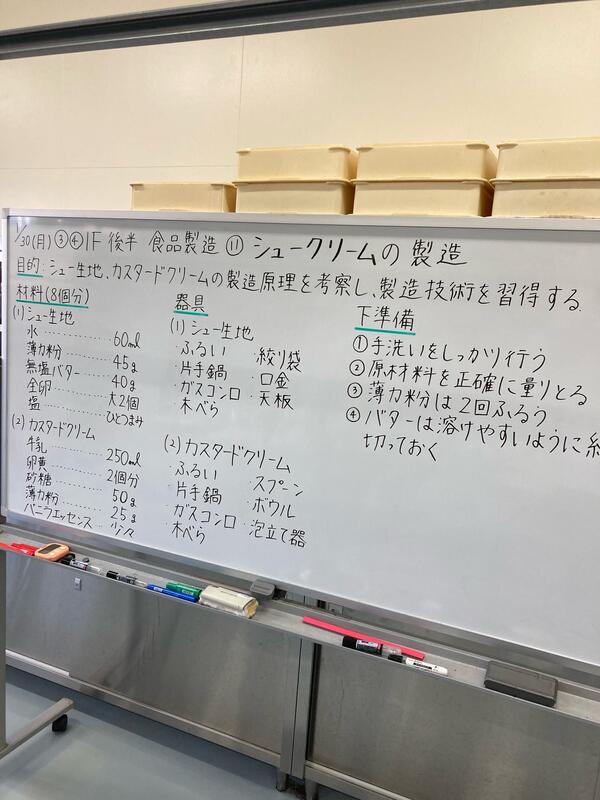 1/30(月)③④1F 後半 食品製造 ⑪ シュークリームの製造
目的:シュー生地、カスタードクリームの製造原理を考察し、製造技術を習得する.
材料(8個分)
(1)シュー生地
水 ………… 60ml
薄力粉 ……… 45g
無塩バター …… 40g
全卵 ………… 大2個
塩 ………… ひとつまみ
(2)カスタードクリーム
牛乳 ………… 250ml
卵黄 ………… 2個分
砂糖 ………… 50g
薄力粉 ……… 25g
バニラエッセンス … 少々
器具
(1)シュー生地
・ふるい ・絞り袋
・片手鍋 ・口金
・ガスコンロ ・天板
・木べら
(2)カスタードクリーム
・ふるい ・スプーン
・片手鍋 ・ボウル
・ガスコンロ ・泡立て器
・木べら
下準備
①手洗いをしっかり行う
②原材料を正確に量りとる
③薄力粉は2回ふるう
④バターは溶けやすいように
切っておく